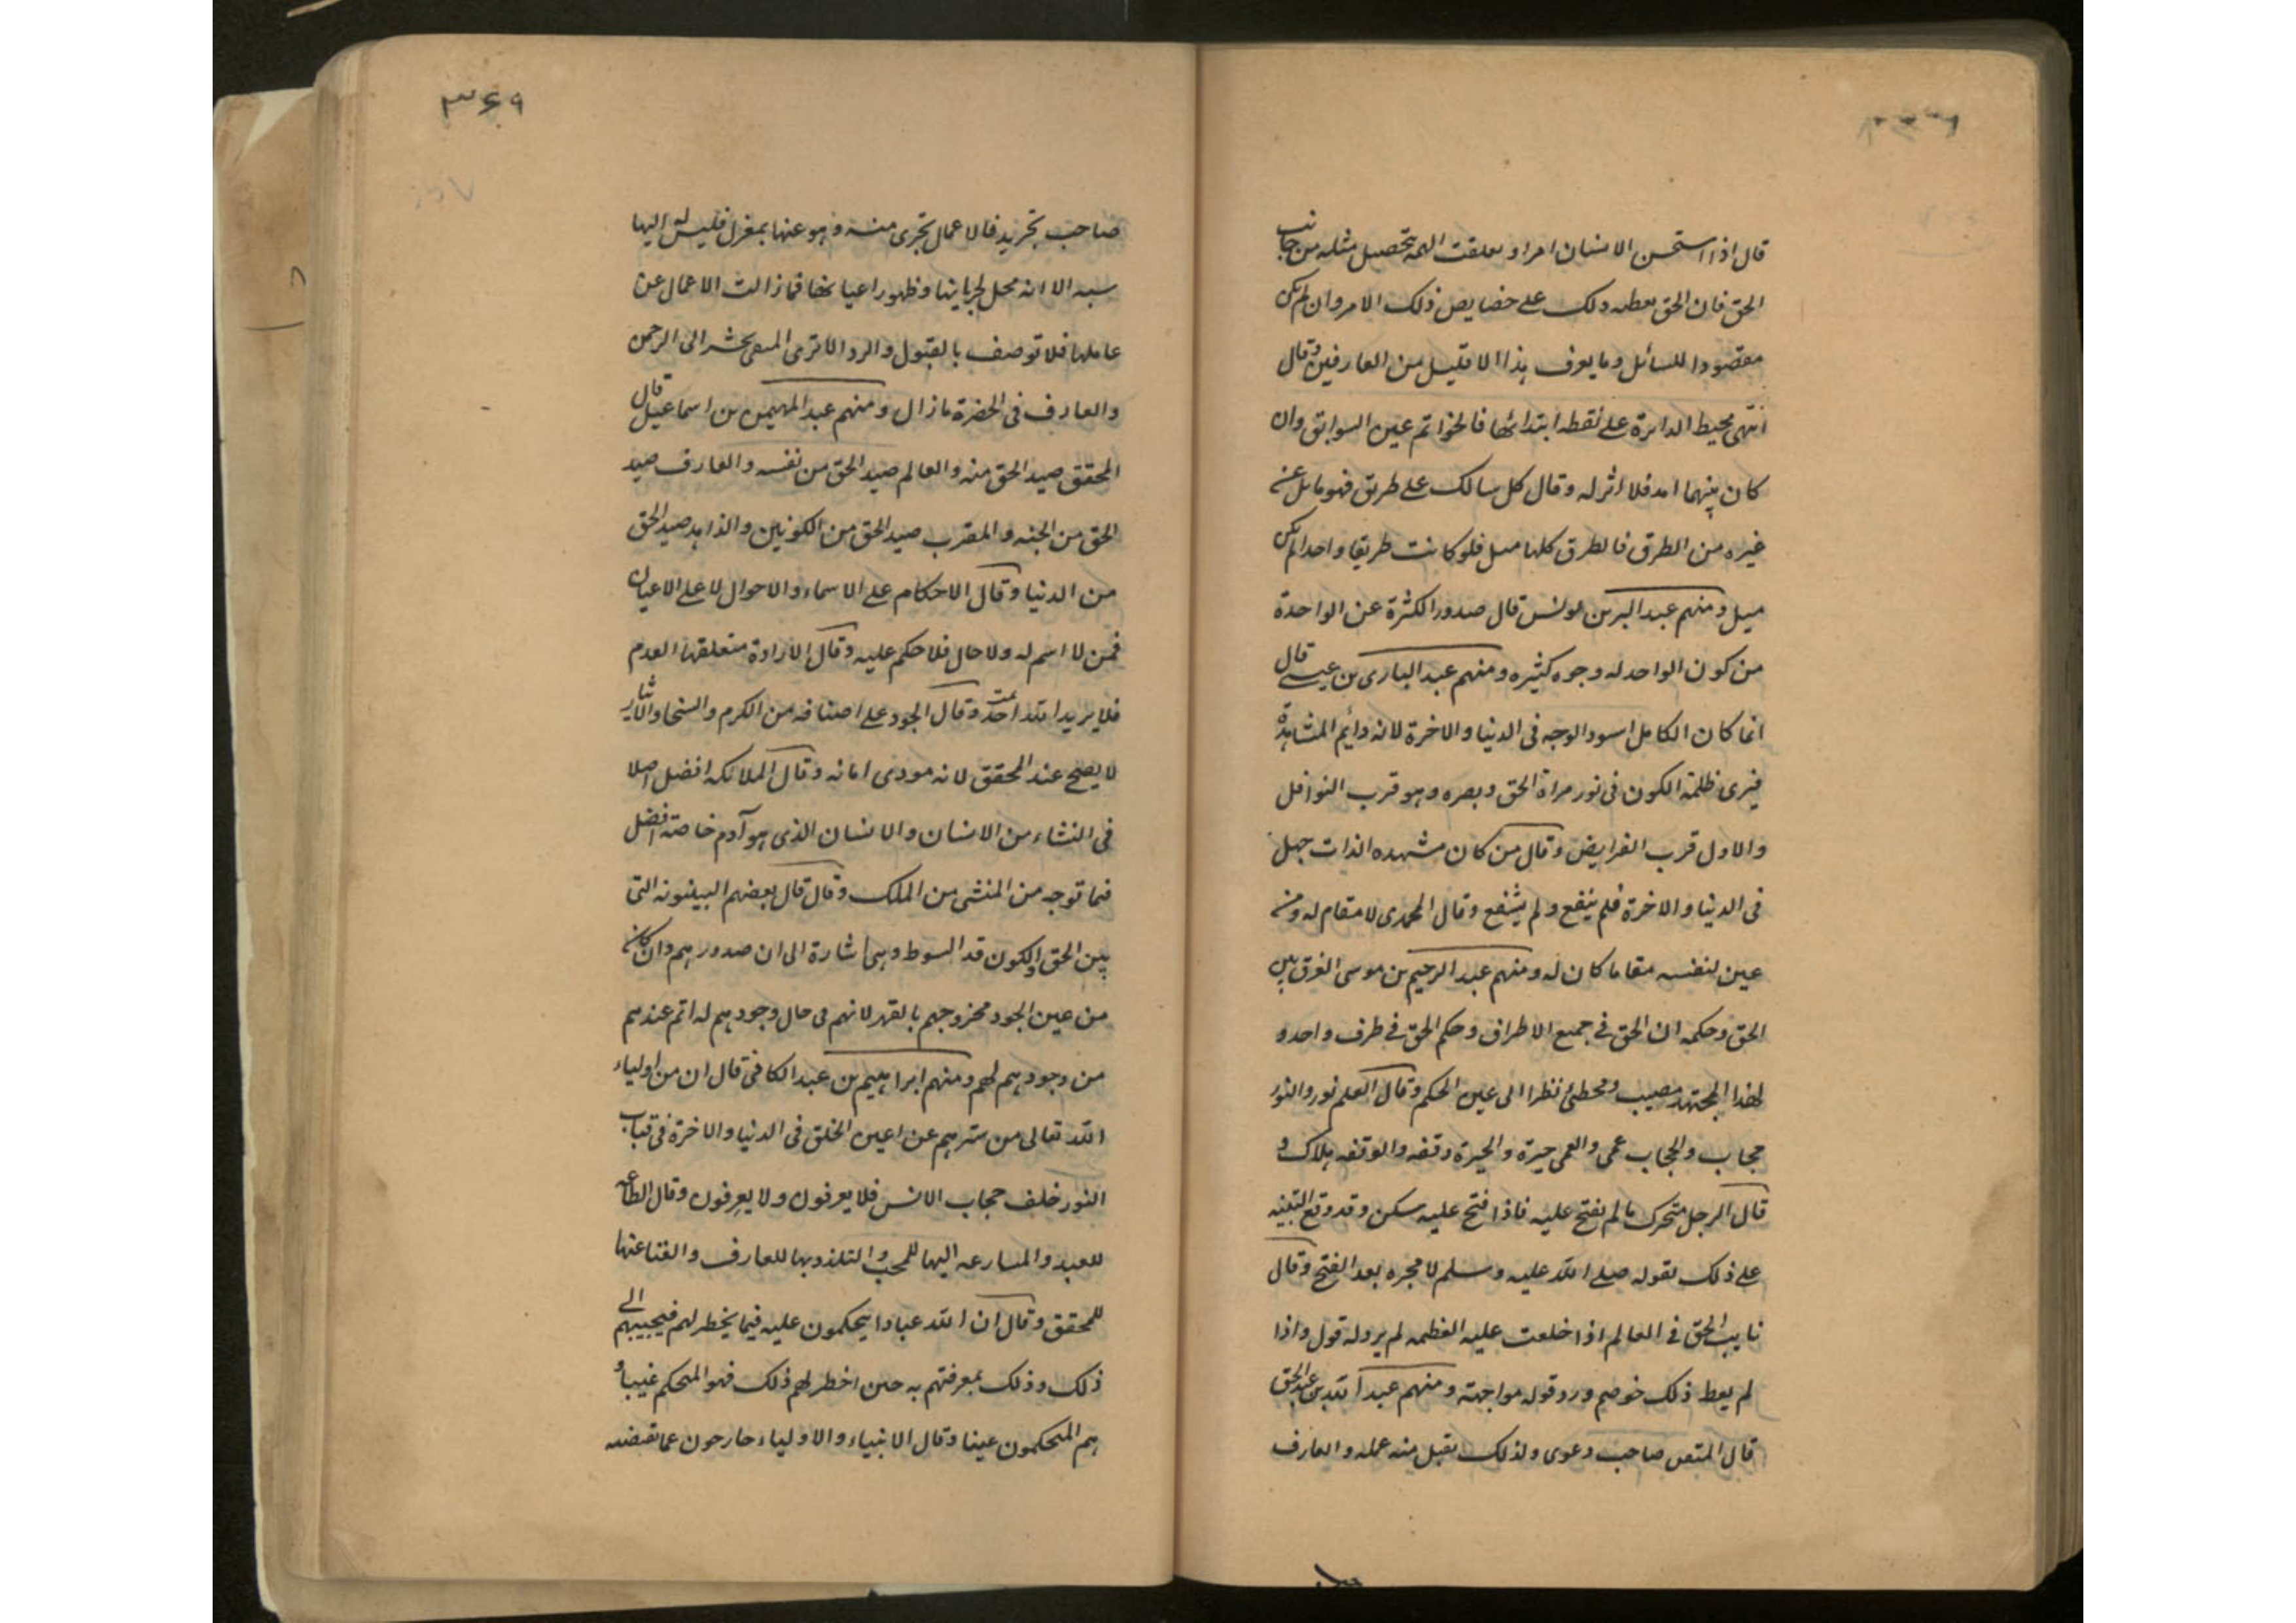 قال اذا استحسن الانسان امرا و تعلقت الهمة بتحصيل مثله من جانب
الحق فان الحق يعطيه ذلك على خصايص ذلك الامر وان لم يكن
مقصودا للسائل وما يعرف هذا الا قليل من العارفين وقال
انتهى محيط الدائرة على نقطه ابتدائها فالخواتم عين السوابق وان
كان بينهما امد فلا اثر له وقال كل سالك على طريق فهو مائل عن
غيره من الطرق فالطرق كلها ميل فلو كانت طريقا واحدا لم يكن
ميل ومنهم عبد البر بن يونس قال صدور الكثرة عن الواحدة
من كون الواحد له وجوه كثيره ومنهم عبد الباري بن عيسى قال
انما كان الكامل اسود الوجه فى الدنيا والاخرة لانه دائم المشاهدة
فيرى ظلمة الكون فى نور مراة الحق وبصره وهو قرب النوافل
والاول قرب الفرايض وقال من كان مشهده الذات جهل
فى الدنيا والاخرة فلم ينفع ولم يشفع وقال المحمدى لا مقام له ومن
عين لنفسه مقاما كان له ومنهم عبد الرحيم بن موسى الفرق بين
الحق وحكمه ان الحق فى جميع الاطراف وحكم الحق فى طرف واحد و
لهذا المجتهد مصيب ومخطئ نظرا الى عين الحكم وقال العلم نور والنور
حجاب والحجاب عمى والعمى حيرة والحيرة وقفه والوقفه هلاك و
قال الرجل متحرك ما لم يفتح عليه فاذا فتح عليه سكن وقد وقع التنبيه
على ذلك بقوله صلى الله عليه وسلم لا هجره بعد الفتح وقال
نايب الحق فى العالم اذا خلعت عليه العظمه لم يرد له قول واذا
لم يعط ذلك خوصم ورد قوله مواجهة ومنهم عبد الله بن عبد الحق
قال المتقى صاحب دعوى ولذلك يقبل منه عمله والعارف
٣٦٩
صاحب تجريد فالاعمال تجرى منه وهو عنها بمعزل فليس له اليها
نسبه الا انه محل لجريانها وظهور اعيانها فما زالت الاعمال عن
عاملها فلا توصف بالقبول والرد الا ترى المتقى يحشر الى الرحمن
والعارف فى الحضرة ما زال ومنهم عبد المهيمن بن اسماعيل قال
المحقق صيد الحق منه والعالم صيد الحق من نفسه والعارف صيد
الحق من الجنه والمقرب صيد الحق من الكونين والزاهد صيد الحق
من الدنيا وقال الاحكام على الاسماء والاحوال لا على الاعيان
فمن لا اسم له ولا حال فلا حكم عليه وقال الارادة متعلقها العدم
فلا يريد الله احد وقال الجود على اصنافه من الكرم والسخا والايثار
لا يصح عند المحقق لانه مودى امانه وقال الملائكه افضل اصلا
فى النشاء من الانسان والانسان الذى هو آدم خاصة افضل
فيما توجه من المنشى من الملك وقال قال بعضهم البينونه التى
بين الحق والكون قد السوط وهى اشارة الى ان صدورهم وان كان
من عين الجود فخروجهم بالقهر لانهم فى حال وجودهم له اتم عندهم
من وجودهم لهم ومنهم ابراهيم بن عبد الكافى قال ان من اولياء
الله تعالى من سترهم عن اعين الخلق فى الدنيا والاخرة فى قباب
النور خلف حجاب الانس فلا يعرفون ولا يعرفون وقال الطاعه
للعبد والمسارعه اليها للمحب والتلذذ بها للعارف والفنا عنها
للمحقق وقال ان لله عبادا يتحكمون عليه فيما يخطر لهم فيجيبهم الى
ذلك وذلك بمعرفتهم به حين اخطر لهم ذلك فهو المتحكم غيبا و
هم المتحكمون عينا وقال الانبياء والاولياء خارجون عما تقتضيه